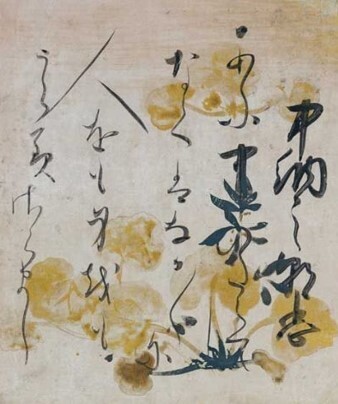 中納言朝忠
あふ事のたえてし
なくはなか〳〵に
人をも身越も
うら見さらまし